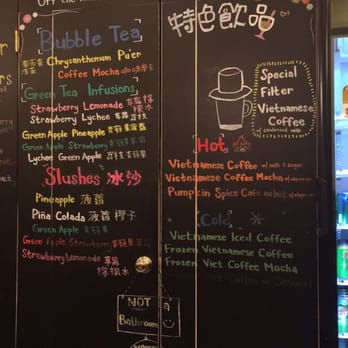 Off the
特色飲品
Bubble Tea
Chrysanthemum Pu'er
Coffee Mocha 咖啡摩卡
Green Tea Infusions
Strawberry Lemonade 草莓檸檬
Strawberry Lychee 草莓荔枝
Green Apple Pineapple 青蘋果菠蘿
Green Apple Strawberry
Lychee Green Apple 荔枝青蘋果
Slushes 冰沙
Pineapple 菠蘿
Piña Colada 菠蘿椰子
Green Apple 青蘋果
Green Apple Strawberry
Strawberry Lemonade 草莓檸檬水
NOT a
Bathroom
Special
Filter
Vietnamese
Coffee
w/ condensed milk
Hot
Vietnamese Coffee
Vietnamese Coffee Mocha
Pumpkin Spice Cafe
Cold
Vietnamese Iced Coffee
Frozen Vietnamese Coffee
Frozen Viet Coffee Mocha